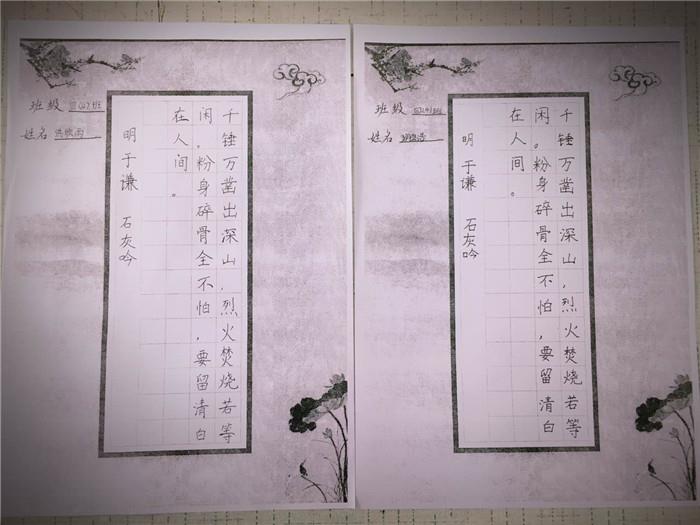 班级 三(2)班
姓名
千锤万凿出深山，烈火焚烧若等
闲。粉身碎骨全不怕，要留清白
在人间。
明 于谦 石灰吟
班级
姓名
千锤万凿出深山，烈火焚烧若等
闲。粉身碎骨全不怕，要留清白
在人间。
明 于谦 石灰吟